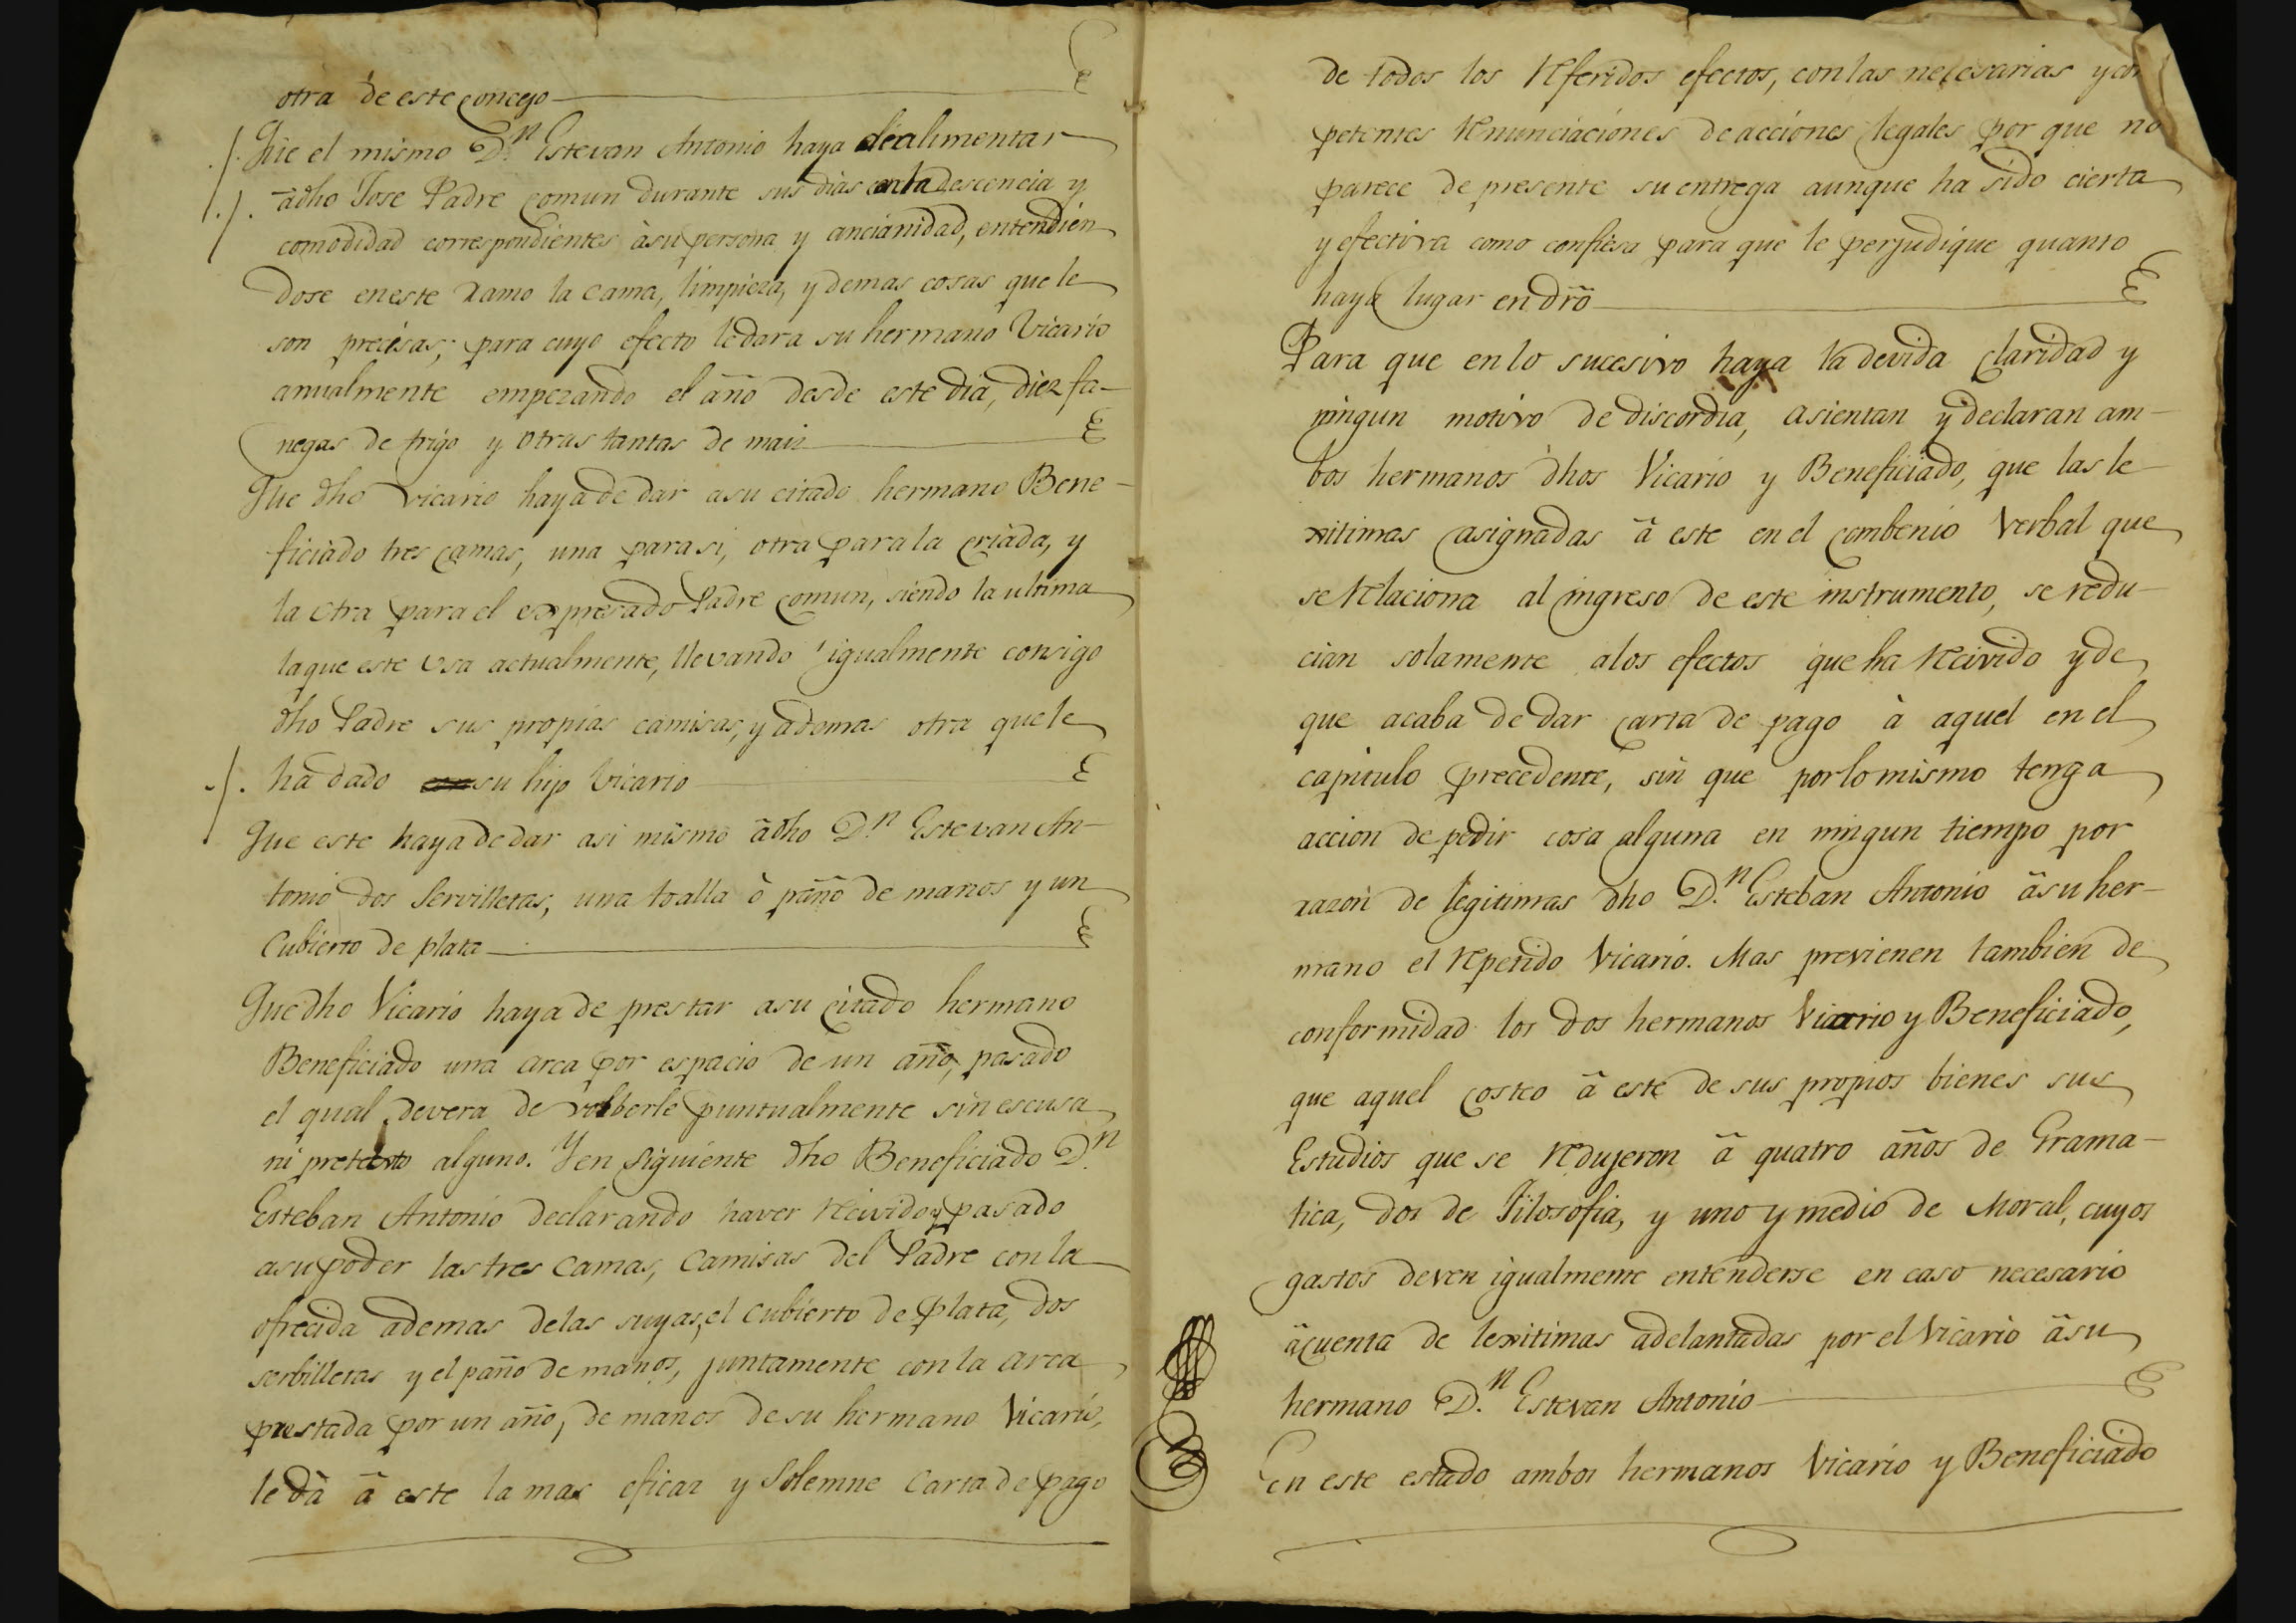 otra de este concejo
Que el mismo D.n Estevan Antonio haya de alimentar
â dho Jose Padre comun durante sus dias con la descencia y
comodidad correspondientes à su persona y ancianidad, entendien
dose en este ramo la cama, limpieza, y demas cosas que le
son precisas; para cuyo efecto le dara su hermano Vicario
anualmente empezando el año desde este dia, diez fa-
negas de trigo y otras tantas de maiz
Que dho vicario haya de dar a su citado hermano Bene-
ficiado tres camas, una para si, otra para la criada, y
la otra para el expresado Padre comun, siendo la ultima
la que este usa actualmente, llevando igualmente consigo
dho Padre sus propias camisas, y ademas otra que le
ha dado su hijo Vicario
Que este haya de dar asi mismo â dho D.n Estevan An-
tonio dos Servilletas, una toalla ò paño de manos y un
Cubierto de plata
Que dho Vicario haya de prestar a su citado hermano
Beneficiado una arca por espacio de un año, pasado
el qual devera de volberle puntualmente sin escusa
ni pretexto alguno. Y en siguiente dho Beneficiado D.n
Esteban Antonio declarando haver recivido y pasado
a su poder las tres camas, Camisas del Padre con la
ofrecida ademas de las suyas, el cubierto de plata, dos
serbilletas y el paño de manos, juntamente con la arca
prestada por un año, de manos de su hermano Vicario,
le dâ â este la mas eficaz y Solemne Carta de pago
de todos los referidos efectos, con las necesarias y com
petentes renunciaciones de acciones legales por que no
parece de presente su entrega aunque ha sido cierta
y efectiva como confiesa para que le perjudique quanto
haya lugar en dro
Para que en lo sucesivo haya la devida claridad y
ningun motivo de discordia, asientan y declaran am-
bos hermanos dhos Vicario y Beneficiado, que las le
xitimas asignadas â este en el combenio verbal que
se relaciona al ingreso de este instrumento, se redu-
cian solamente a los efectos que ha recivido y de
que acaba de dar carta de pago à aquel en el
capitulo precedente, sin que por lo mismo tenga
accion de pedir cosa alguna en ningun tiempo por
razon de legitimas dho D.n Esteban Antonio â su her-
mano el repetido Vicario. Mas previenen tambien de
conformidad los dos hermanos Vicario y Beneficiado,
que aquel costeo â este de sus propios bienes sus
Estudios que se redujeron â quatro años de Grama-
tica, dos de Filosofia, y uno y medio de Moral, cuyos
gastos deven igualmente entenderse en caso necesario
â cuenta de lexitimas adelantadas por el Vicario â su
hermano D.n Estevan Antonio
En este estado ambos hermanos Vicario y Beneficiado